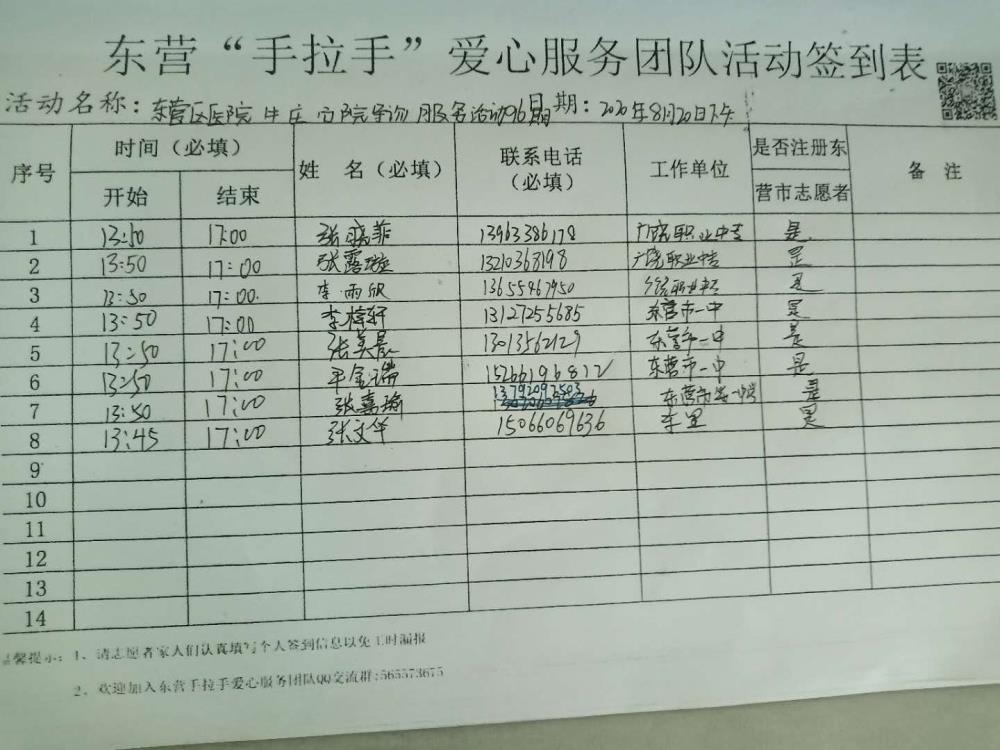 东营“手拉手”爱心服务团队活动签到表
活动名称：东营区医院 牛庄 分院导诊 服务活动96期 日期：2020年8月20日下午
序号 时间（必填） 姓 名（必填） 联系电话（必填） 工作单位 是否注册东营市志愿者 备 注
开始 结束
1 13:50 17:00 张晓菲 13963386178 广饶职业中专 是
2 13:50 17:00 张露璇 13210368198 广饶职业中专 是
3 13:50 17:00. 李雨欣 13655467950 职业中专 是
4 13:50 17:00 李梓轩 13127255685 东营市一中 是
5 13:50 17:00 张美晨 13013562129 东营市一中 是
6 13:50 17:00 金瑞 15266196812 东营市一中 是
7 13:50 17:00 张嘉瑜 13792092503 东营市 是
8 13:45 17:00 张文华 15066069636 是
9
10
11
12
13
14
温馨提示：1、请志愿者家人们认真填写个人签到信息以免工时漏报
2、欢迎加入东营手拉手爱心服务团队QQ交流群:565573675